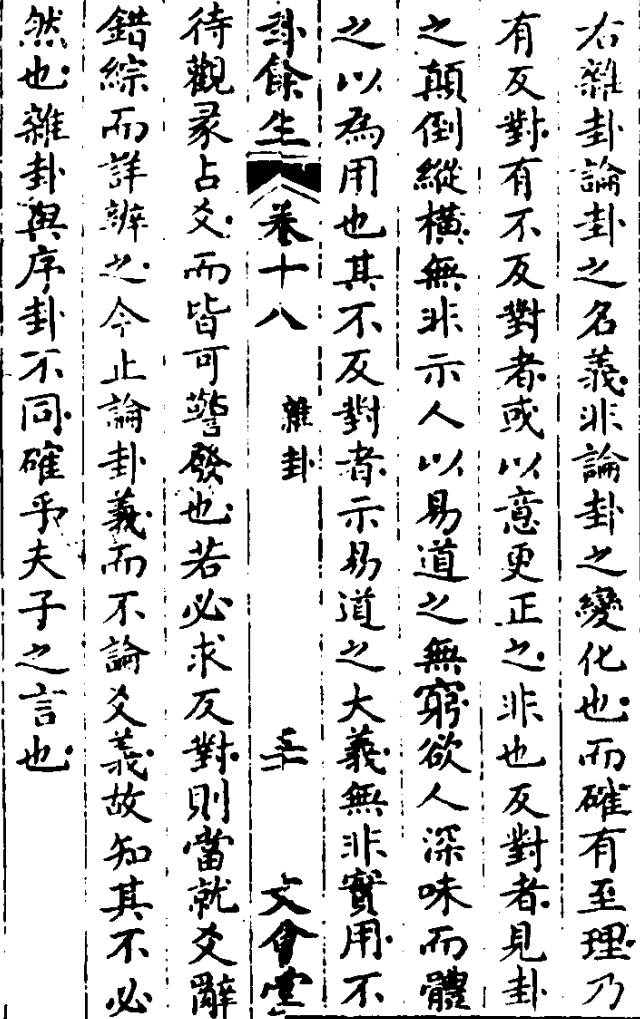 右雜卦論卦之名義非論卦之變化也而確有至理乃
有反對有不反對者或以意更正之非也反對者見卦
之顛倒縱橫無非示人以易道之無窮欲人深味而體
之以為用也其不反對者示易道之大義無非實用不
卦餘生 卷十八 雜卦 文會堂
待觀彖占爻而皆可警發也若必求反對則當就爻辭
錯綜而詳辨之今止論卦義而不論爻義故知其不必
然也雜卦與序卦不同確乎夫子之言也